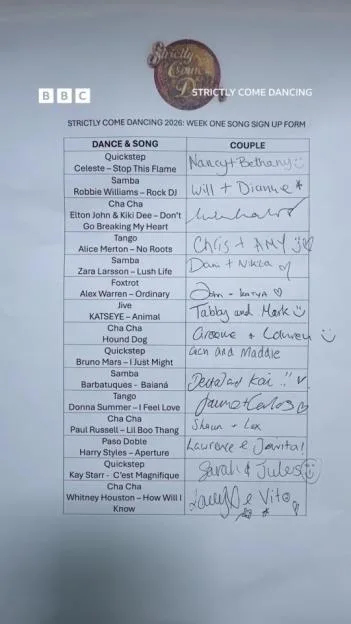 Strictly Come D
BBC
STRICTLY COME DANCING
STRICTLY COME DANCING 2026: WEEK ONE SONG SIGN UP FORM
DANCE & SONG COUPLE
Quickstep
Celeste – Stop This Flame Nancy + Bethany
Samba
Robbie Williams – Rock DJ Will + Dianne
Cha Cha
Elton John & Kiki Dee – Don't
Go Breaking My Heart
Tango
Alice Merton – No Roots Chris + AMY
Samba
Zara Larsson – Lush Life Dani + Nikita
Foxtrot
Alex Warren – Ordinary John - Katya
Jive
KATSEYE – Animal Tabby and Mark
Cha Cha
Hound Dog + Lauren
Quickstep
Bruno Mars – I Just Might and Maddie
Samba
Barbatuques - Baianá and Kai !!
Tango
Donna Summer – I Feel Love + Carlos
Cha Cha
Paul Russell – Lil Boo Thang Shaun + Lex
Paso Doble
Harry Styles – Aperture Lawrence & !
Quickstep
Kay Starr - C'est Magnifique Sarah & Jules
Cha Cha
Whitney Houston – How Will I
Know & Vito